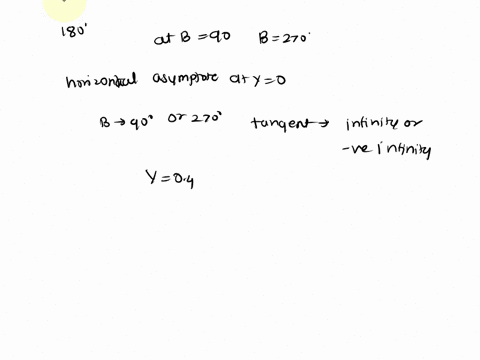 180°
at B = 90 B = 270°
horizontal asymptote at y = 0
B → 90° or 270° tangent → infinity or
-ve infinity
Y = 0.4